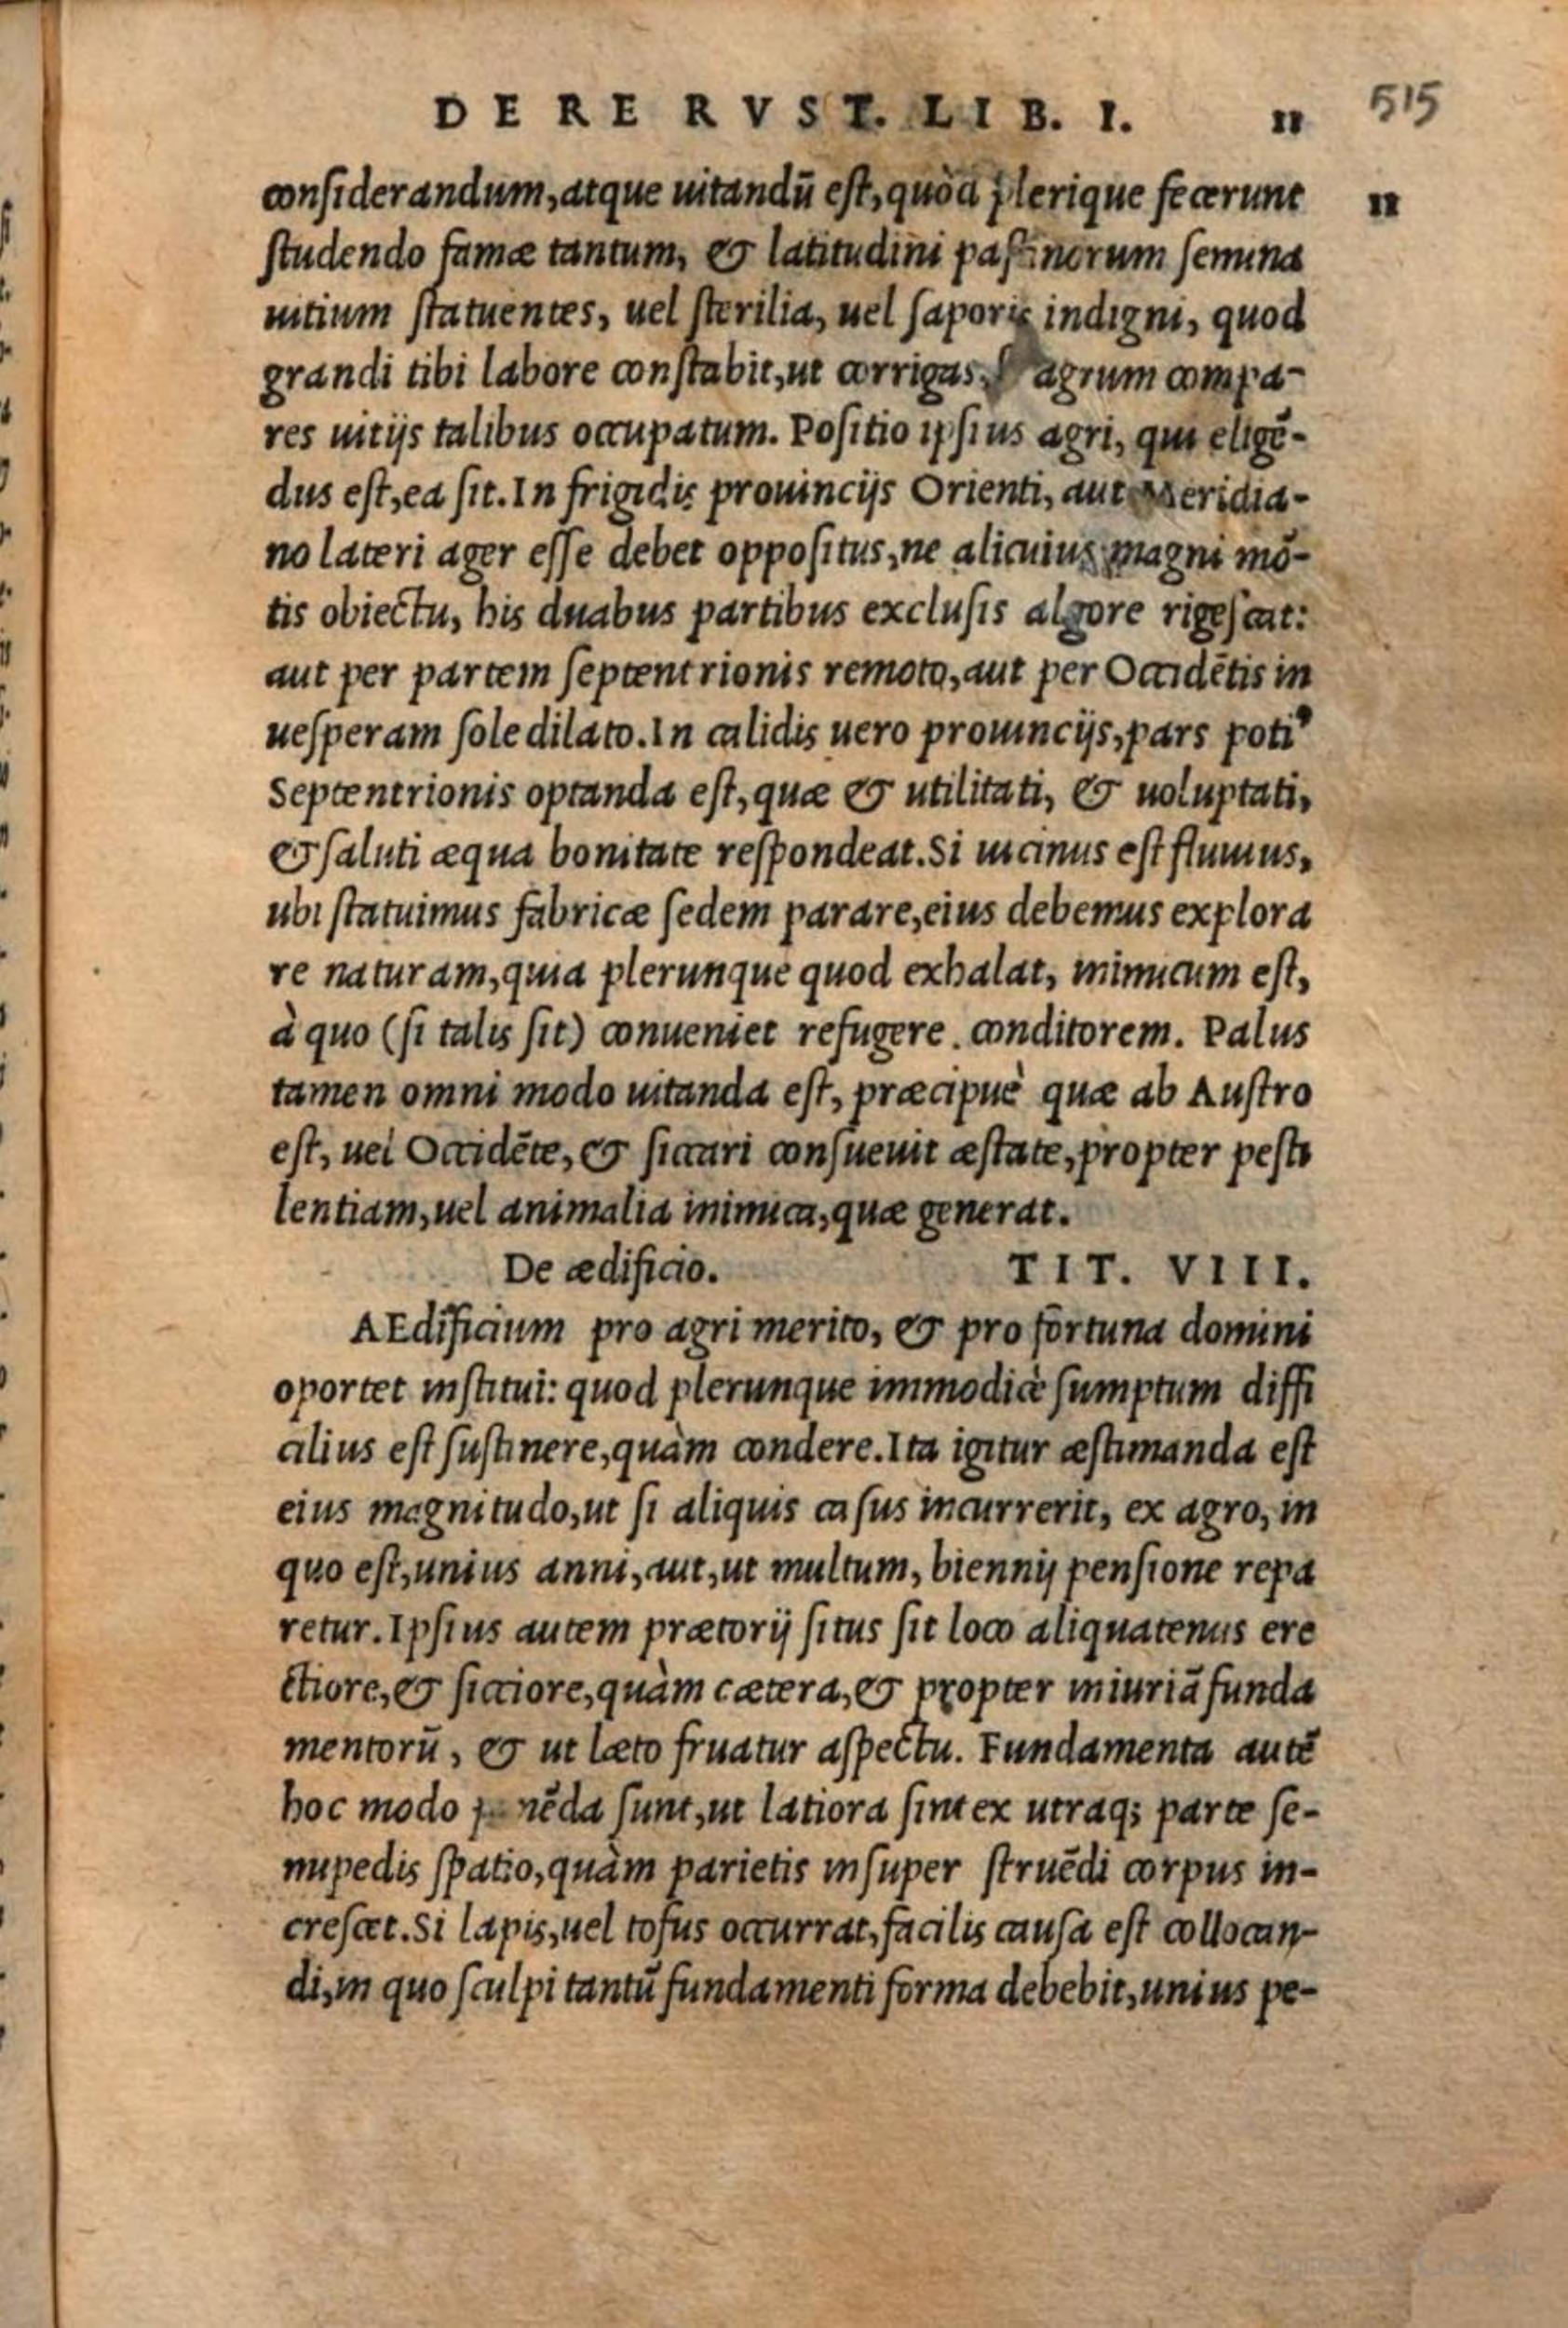 DE RE RVST. LIB. I. 11 515
considerandum, atque uitandū est, quòd plerique fecerunt 11
studendo famæ tantum, & latitudini pastinorum semina
uitium statuentes, uel sterilia, uel saporis indigni, quod
grandi tibi labore constabit, ut corrigas, agrum compa-
res uitijs talibus occupatum. Positio ipsius agri, qui eligē-
dus est, ea sit. In frigidis prouincijs Orienti, aut Meridia-
no lateri ager esse debet oppositus, ne alicuius magni mō-
tis obiectu, his duabus partibus exclusis algore rigescat:
aut per partem septentrionis remoto, aut per Occidētis in
uesperam sole dilato. In calidis uero prouincijs, pars potiꝰ
Septentrionis optanda est, quæ & utilitati, & uoluptati,
& saluti æqua bonitate respondeat. Si uicinus est fluuius,
ubi statuimus fabricæ sedem parare, eius debemus explora
re naturam, quia plerunque quod exhalat, inimicum est,
à quo (si talis sit) conueniet refugere. conditorem. Palus
tamen omni modo uitanda est, præcipuè quæ ab Austro
est, uel Occidēte, & siccari consueuit æstate, propter pesti
lentiam, uel animalia inimica, quæ generat.
De ædificio. TIT. VIII.
AEdificium pro agri merito, & pro fortuna domini
oportet institui: quod plerunque immodicè sumptum diffi
cilius est sustinere, quàm condere. Ita igitur æstimanda est
eius magnitudo, ut si aliquis casus incurrerit, ex agro, in
quo est, unius anni, aut, ut multum, biennij pensione repa
retur. Ipsius autem prætorij situs sit loco aliquatenus ere
ctiore, & sicciore, quàm cætera, & propter iniuriā funda
mentorū, & ut læto fruatur aspectu. Fundamenta autē
hoc modo ponēda sunt, ut latiora sint ex utraq; parte se-
mipedis spatio, quàm parietis insuper struēdi corpus in-
crescet. Si lapis, uel tofus occurrat, facilis causa est collocan-
di, in quo sculpi tantū fundamenti forma debebit, unius pe-